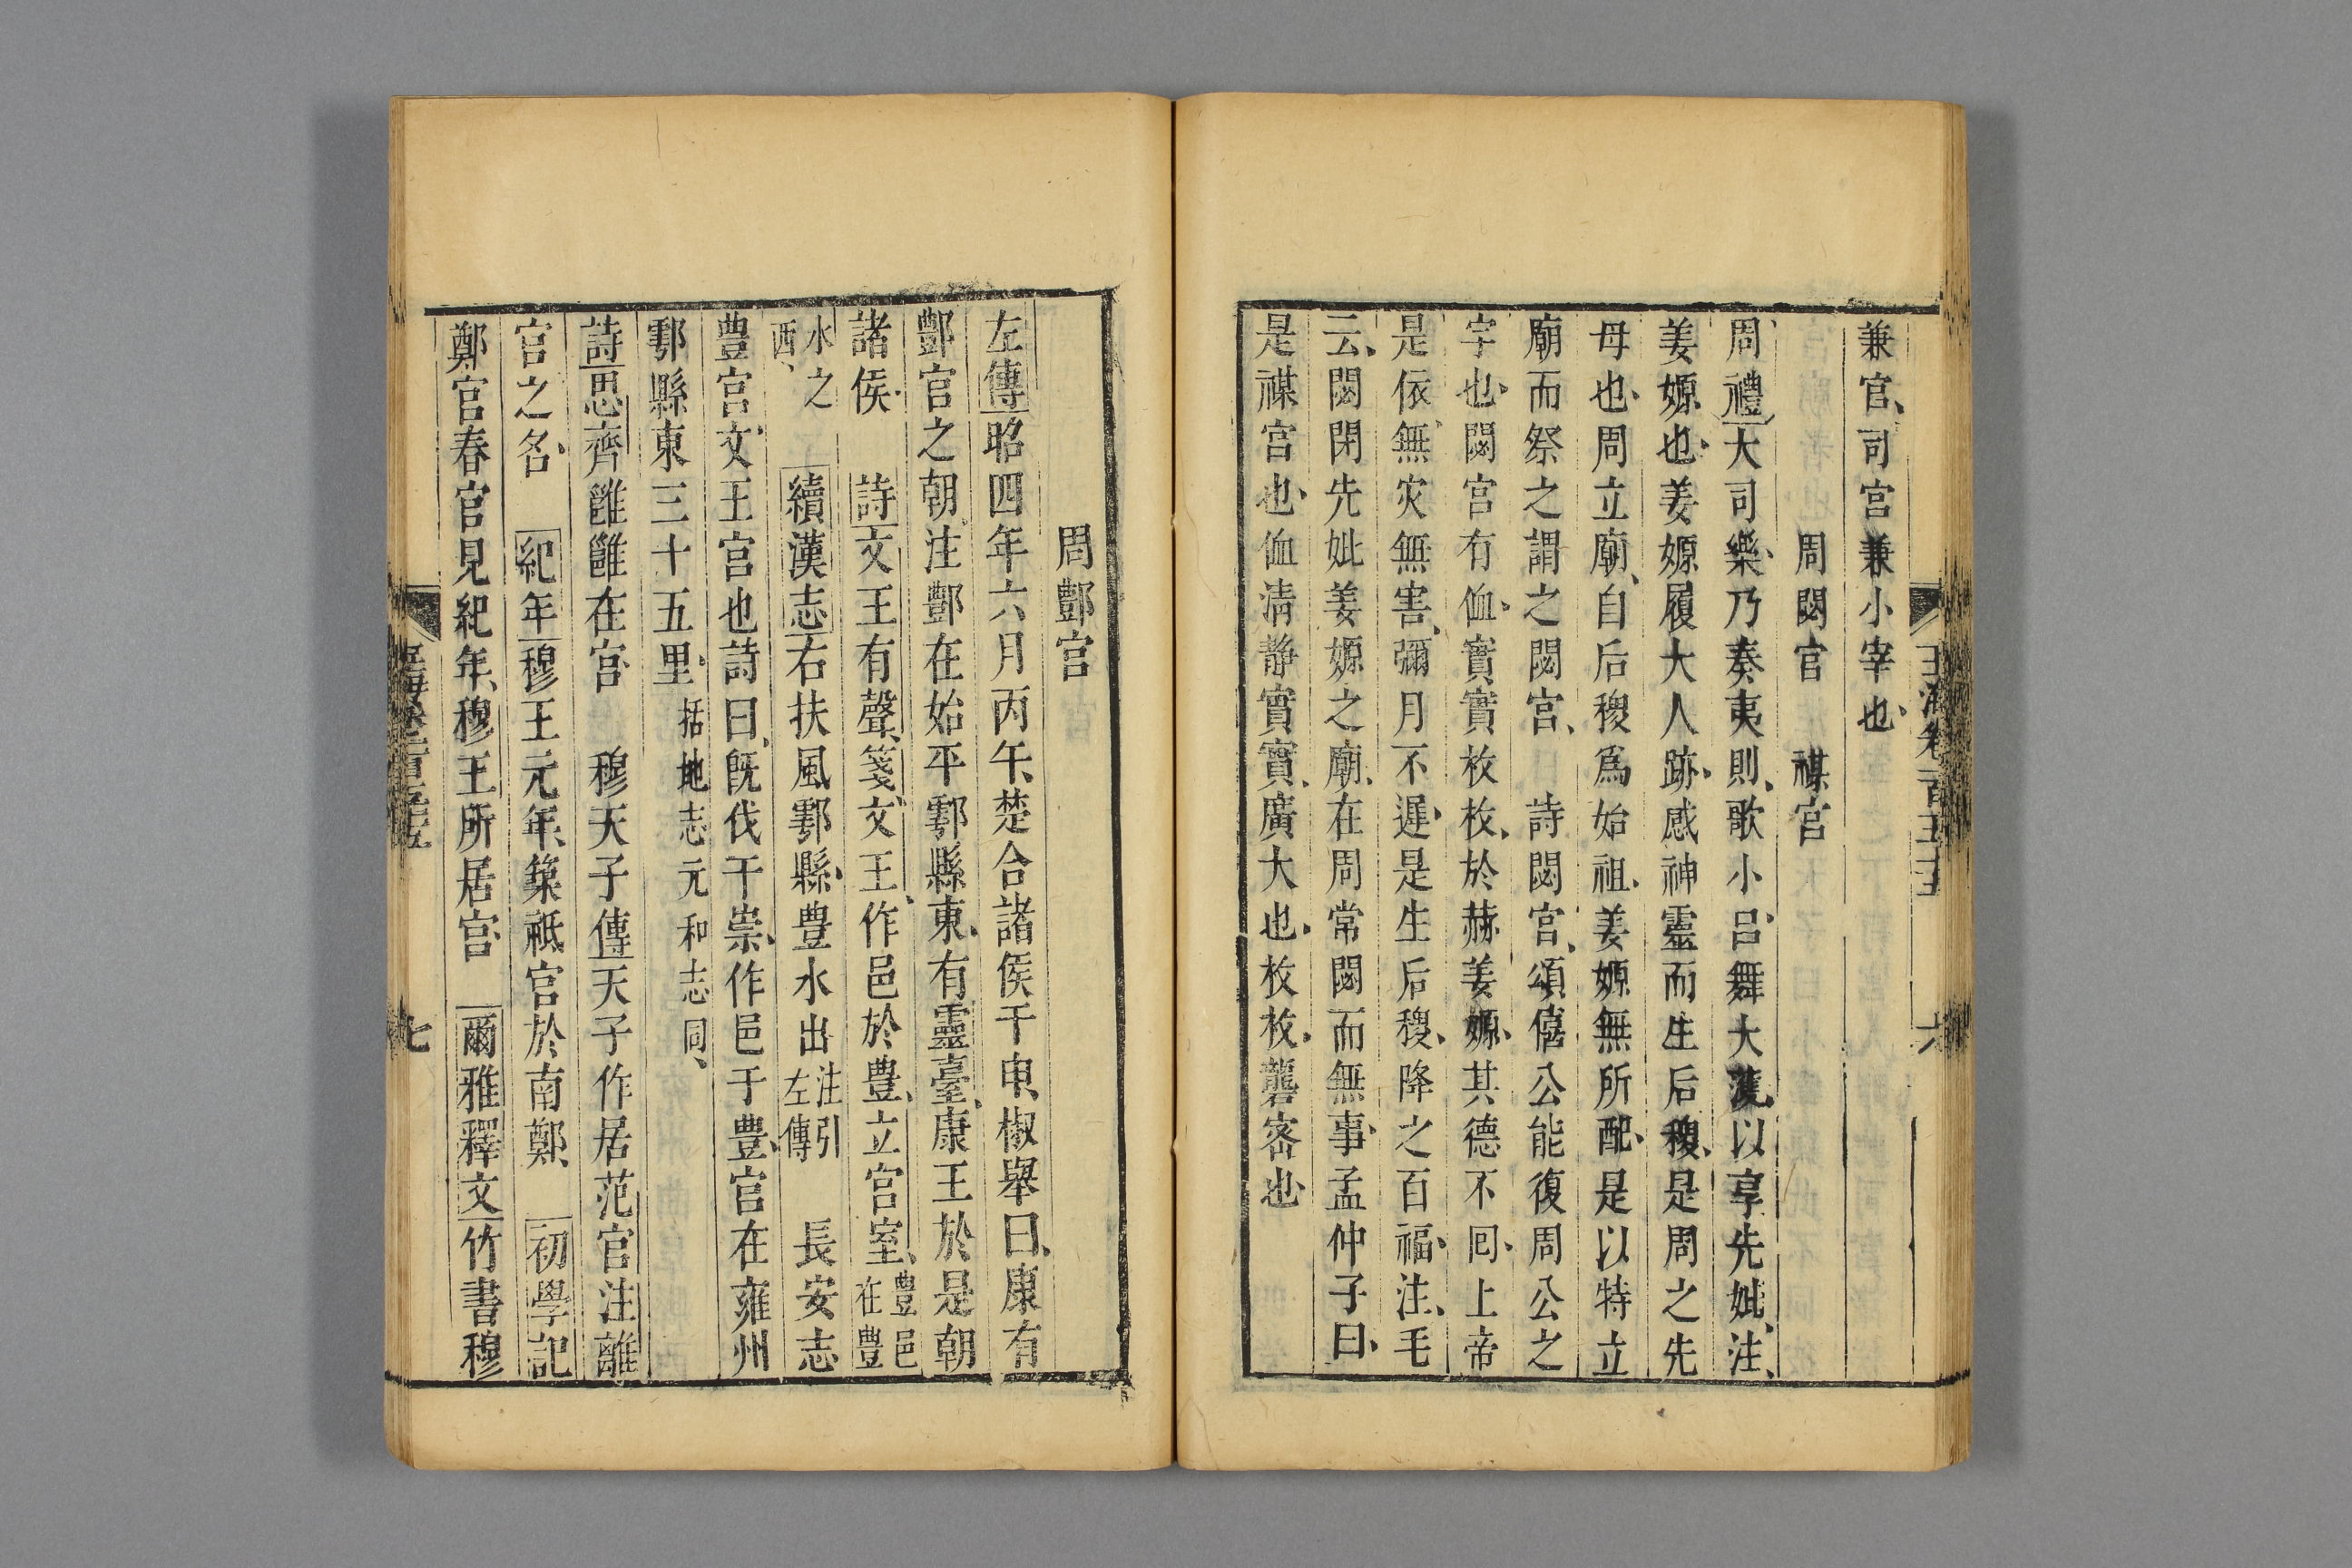 玉海卷一百五十五
六
兼官、司宫兼小宰也、
周閟宫　禖宫
周禮大司樂、乃奏夷則、歌小呂、舞大濩、以享先妣、注、
姜嫄也、姜嫄履大人跡、感神靈而生后稷、是周之先
母也、周立廟、自后稷爲始祖、姜嫄無所配、是以特立
廟而祭之謂之閟宫、　詩閟宫、頌僖公能復周公之
宇也、閟宫有侐、實實枚枚、於赫姜嫄、其德不回、上帝
是依、無灾無害、彌月不遲、是生后稷、降之百福、注、毛
云、閟閉先妣姜嫄之廟、在周常閟而無事、孟仲子曰、
是禖宫也、侐淸靜實實、廣大也、枚枚、礱宻也、
周酆宫
左傳昭四年六月丙午、楚合諸侯于申、椒舉曰、康有
酆宫之朝、注酆在始平鄠縣東、有靈臺、康王於是朝
諸侯、　詩文王有聲、箋、文王、作邑於豊、立宫室、豊邑在豊
水之西、　續漢志右扶風鄠縣、豊水出注引左傳　長安志
豊宫、文王宫也詩曰、旣伐于崇、作邑于豊、宫在雍州
鄠縣東三十五里、括地志元和志同、
詩思齊雝雝在宫、　穆天子傳天子作居范宫注離
宫之名、　紀年穆王元年、築祇宫於南鄭、　初學記
鄭宫春宫見紀年、穆王所居宫、　爾雅釋文竹書穆
七